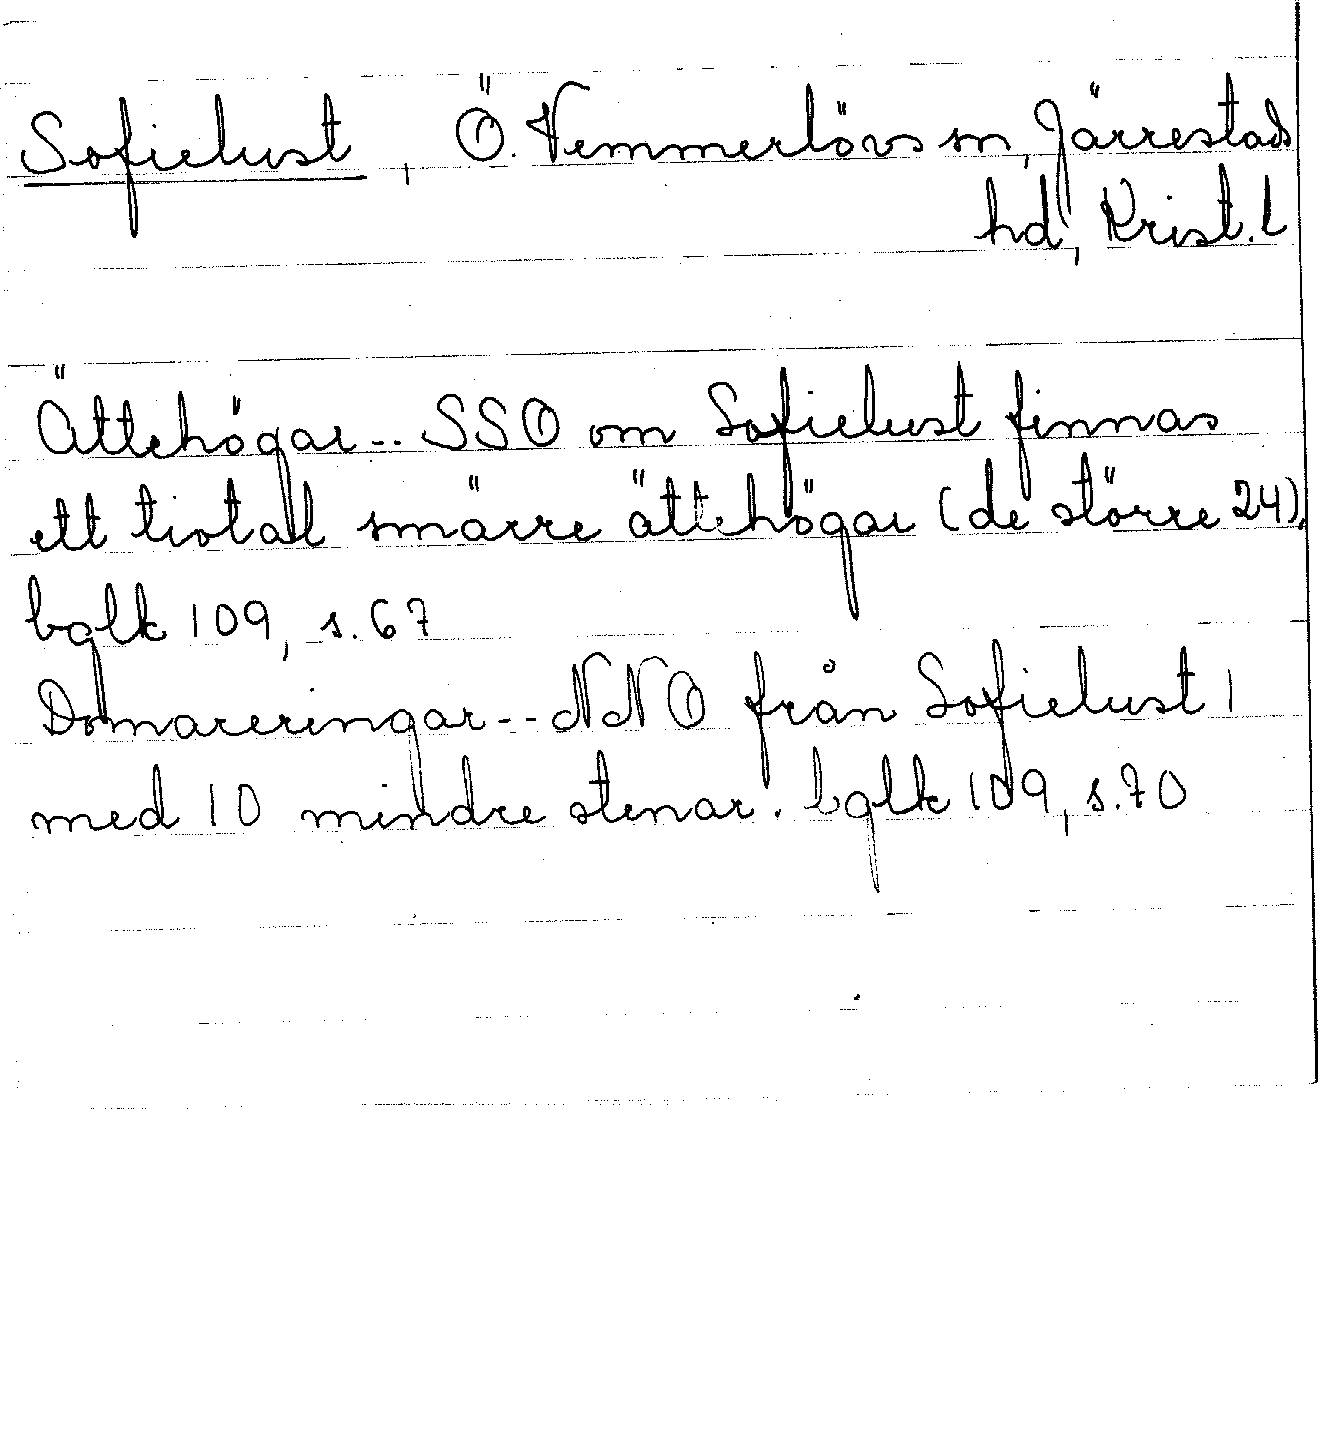 Sofielust, Ö. Vemmerlövs sn, Järrestads
hd, Krist. l
Ättehögar -- SSO om Sofielust finnas
ett tiotal smärre ättehögar (de större 24).
bglk 109, s. 67
Domareringar -- NNO från Sofielust 1
med 10 mindre stenar. bglk 109, s. 70